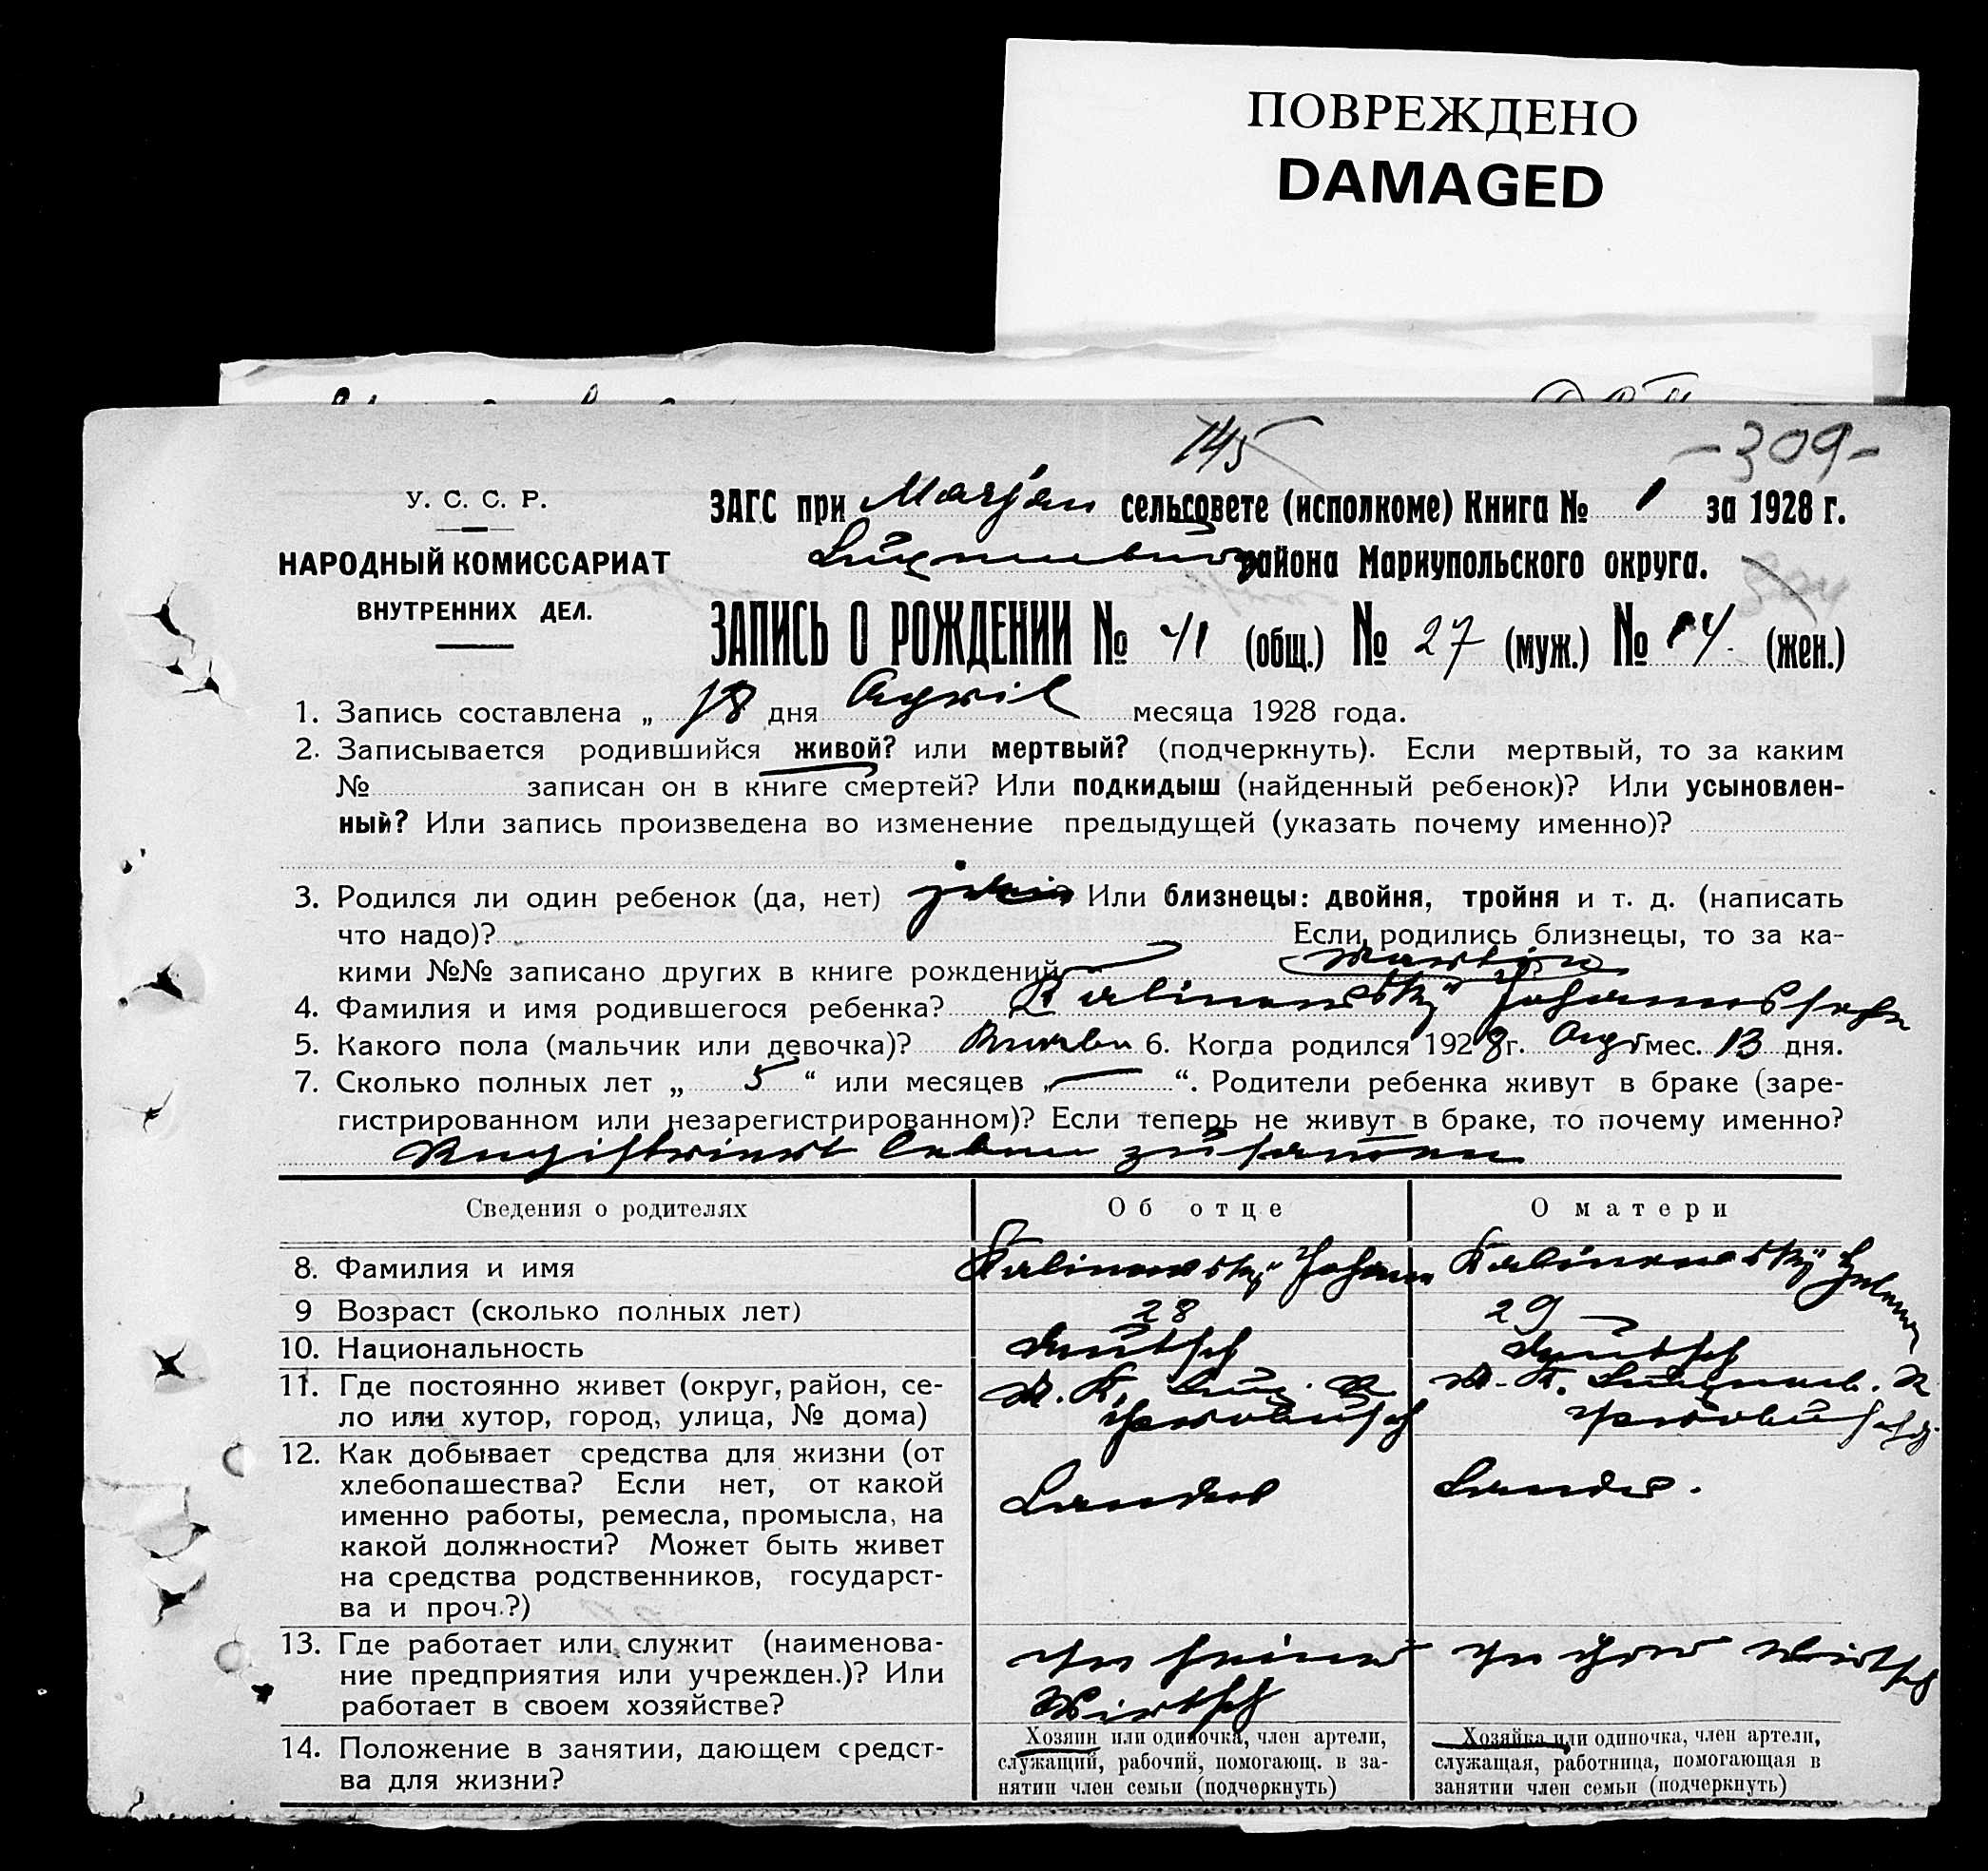 ПОВРЕЖДЕНО
DAMAGED
145
-309-
У. С. С. Р.
НАРОДНЫЙ КОМИССАРИАТ
ВНУТРЕННИХ ДЕЛ.
ЗАГС при Marjan сельсовете (исполкоме) Книга № 1 за 1928 г.
района Мариупольского округа.
ЗАПИСЬ О РОЖДЕНИИ № 41 (общ.) № 27 (муж.) № 14. (жен.)
1. Запись составлена „ 18 дня April месяца 1928 года.
2. Записывается родившийся живой? или мертвый? (подчеркнуть). Если мертвый, то за каким
№ записан он в книге смертей? Или подкидыш (найденный ребенок)? Или усыновлен-
ный? Или запись произведена во изменение предыдущей (указать почему именно)?
3. Родился ли один ребенок (да, нет) Или близнецы: двойня, тройня и т. д. (написать
что надо)? Если родились близнецы, то за ка-
кими №№ записано других в книге рождений
Martin
4. Фамилия и имя родившегося ребенка? Kalinowsky Johannes
5. Какого пола (мальчик или девочка)? Knabe 6. Когда родился 1928 г. Apr мес. 13 дня.
7. Сколько полных лет „ 5 “ или месяцев „ — “. Родители ребенка живут в браке (заре-
гистрированном или незарегистрированном)? Если теперь не живут в браке, то почему именно?
Registriert leben zusammen
Сведения о родителях Об отце О матери
8. Фамилия и имя Kalinowsky Johann Kalinowsky Helena
9 Возраст (сколько полных лет) 28 29
10. Национальность Deutsch Deutsch
11. Где постоянно живет (округ, район, се-
ло или хутор, город, улица, № дома)
12. Как добывает средства для жизни (от
хлебопашества? Если нет, от какой
именно работы, ремесла, промысла, на
какой должности? Может быть живет
на средства родственников, государст-
ва и проч.?)
13. Где работает или служит (наименова-
ние предприятия или учрежден.)? Или
работает в своем хозяйстве?
In seiner Wirtsch
In ihrer Wirtsch
14. Положение в занятии, дающем средст-
ва для жизни?
Хозяин или одиночка, член артели,
служащий, рабочий, помогающ. в за-
нятии член семьи (подчеркнуть)
Хозяйка или одиночка, член артели,
служащая, работница, помогающая в
занятии член семьи (подчеркнуть)